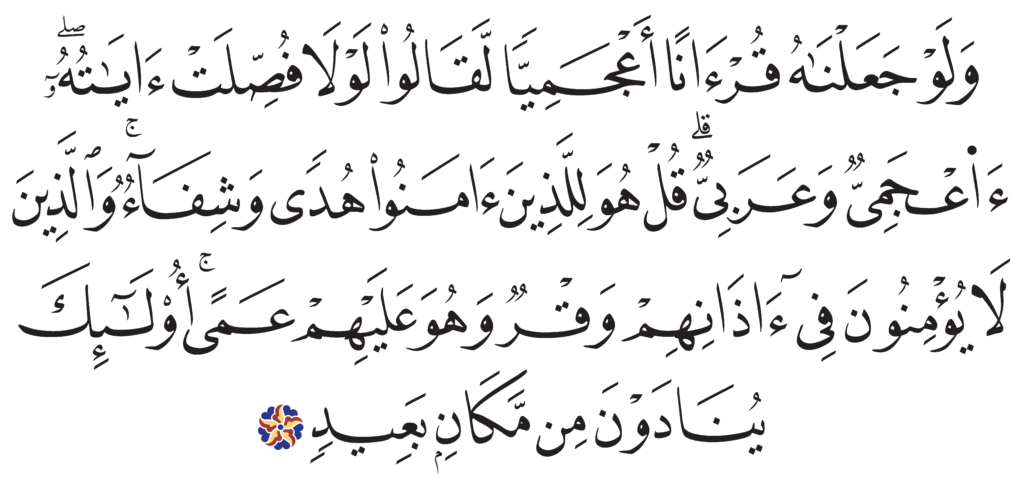 وَلَوْ جَعَلْنَٰهُ قُرْءَانًا أَعْجَمِيًّا لَّقَالُوا۟ لَوْلَا فُصِّلَتْ ءَايَٰتُهُۥٓ ۖ
ءَا۬عْجَمِىٌّ وَعَرَبِىٌّ ۗ قُلْ هُوَ لِلَّذِينَ ءَامَنُوا۟ هُدًى وَشِفَآءٌ ۚ وَٱلَّذِينَ
لَا يُؤْمِنُونَ فِىٓ ءَاذَانِهِمْ وَقْرٌ وَهُوَ عَلَيْهِمْ عَمًى ۚ أُو۟لَٰٓئِكَ
يُنَادَوْنَ مِن مَّكَانٍۭ بَعِيدٍ